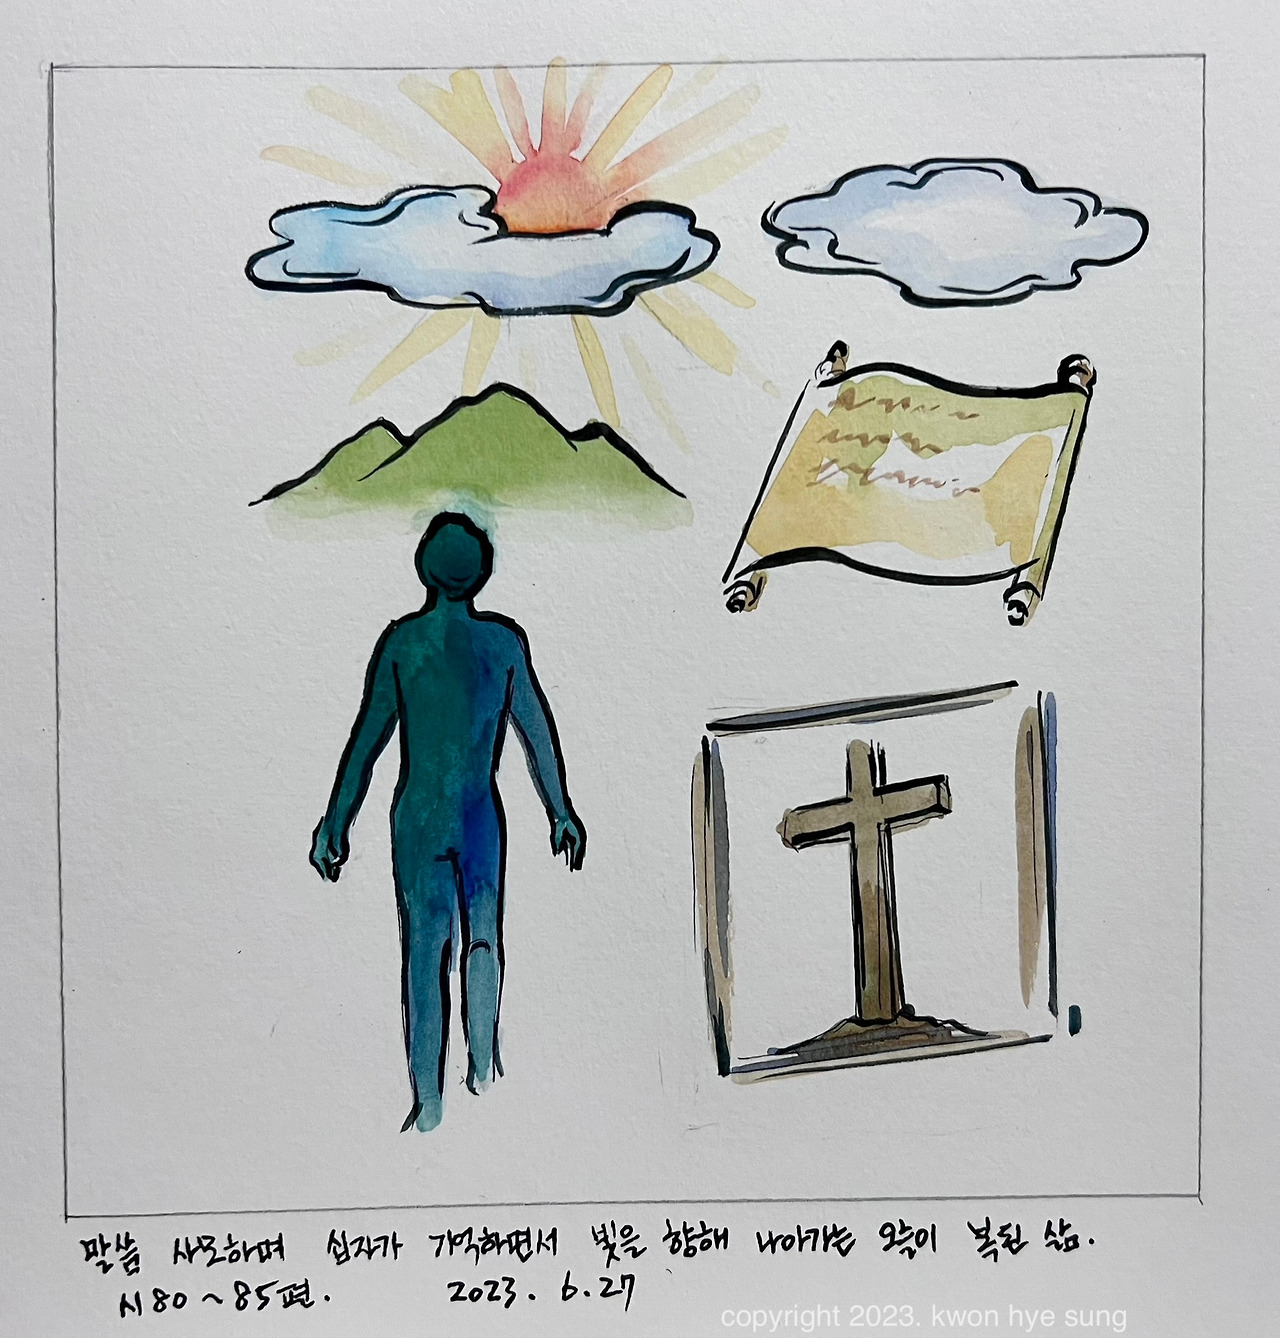 말씀 사모하며 십자가 기억하면서 빛을 향해 나아가는 오늘이 복된 삶.
시 80 ~ 85편. 2023. 6. 27
copyright 2023. kwon hye sung